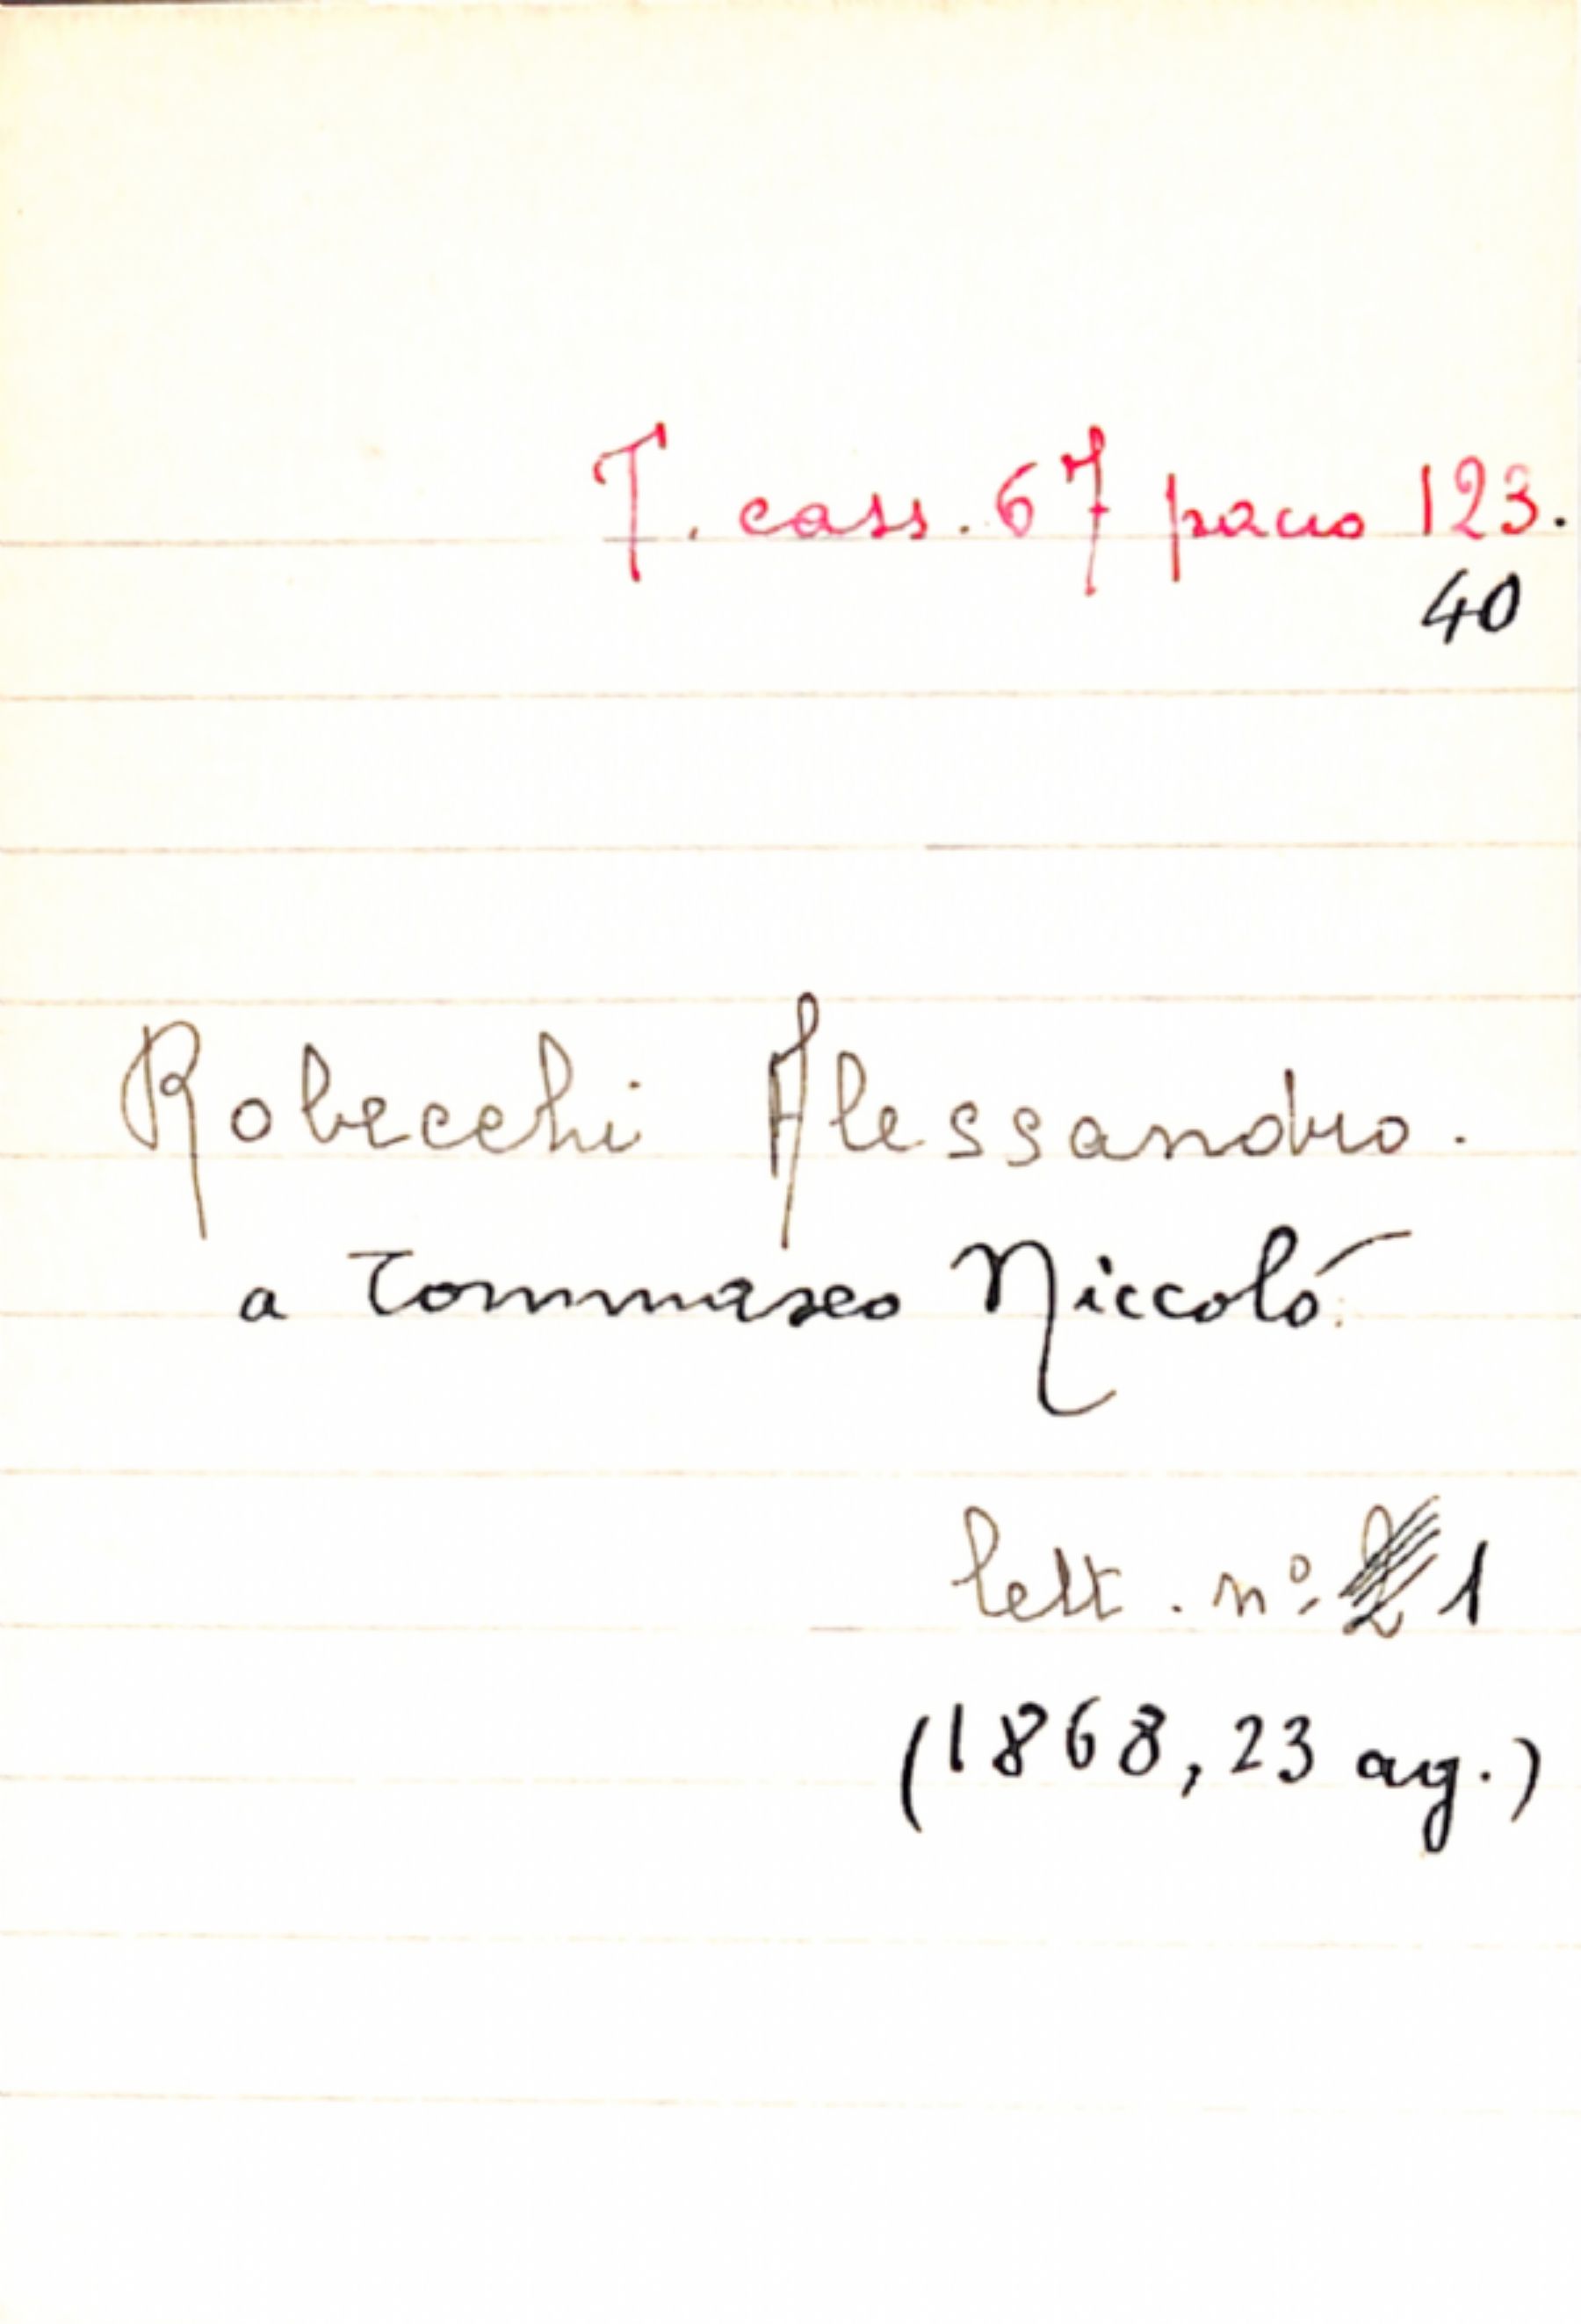 T. cass. 67 pacco 123.
40
Robecchi Alessandro.
a Tommaseo Niccoló
lett. nº 2 1
(1868, 23 ag.)